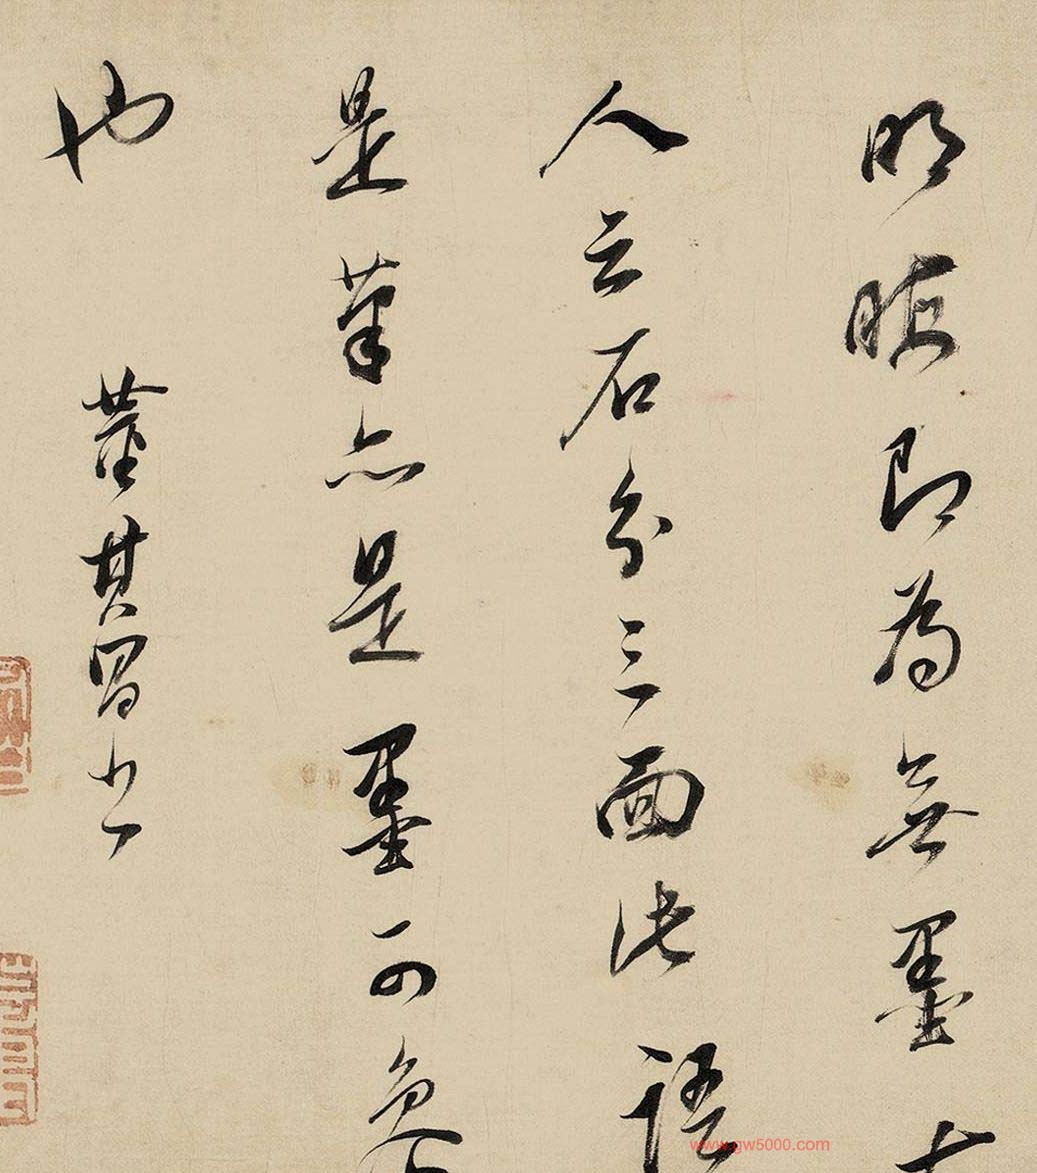 明晦即為無墨古
人云石分三面此語
是筆亦是墨可參
也
董其昌書
www.gw5000.com